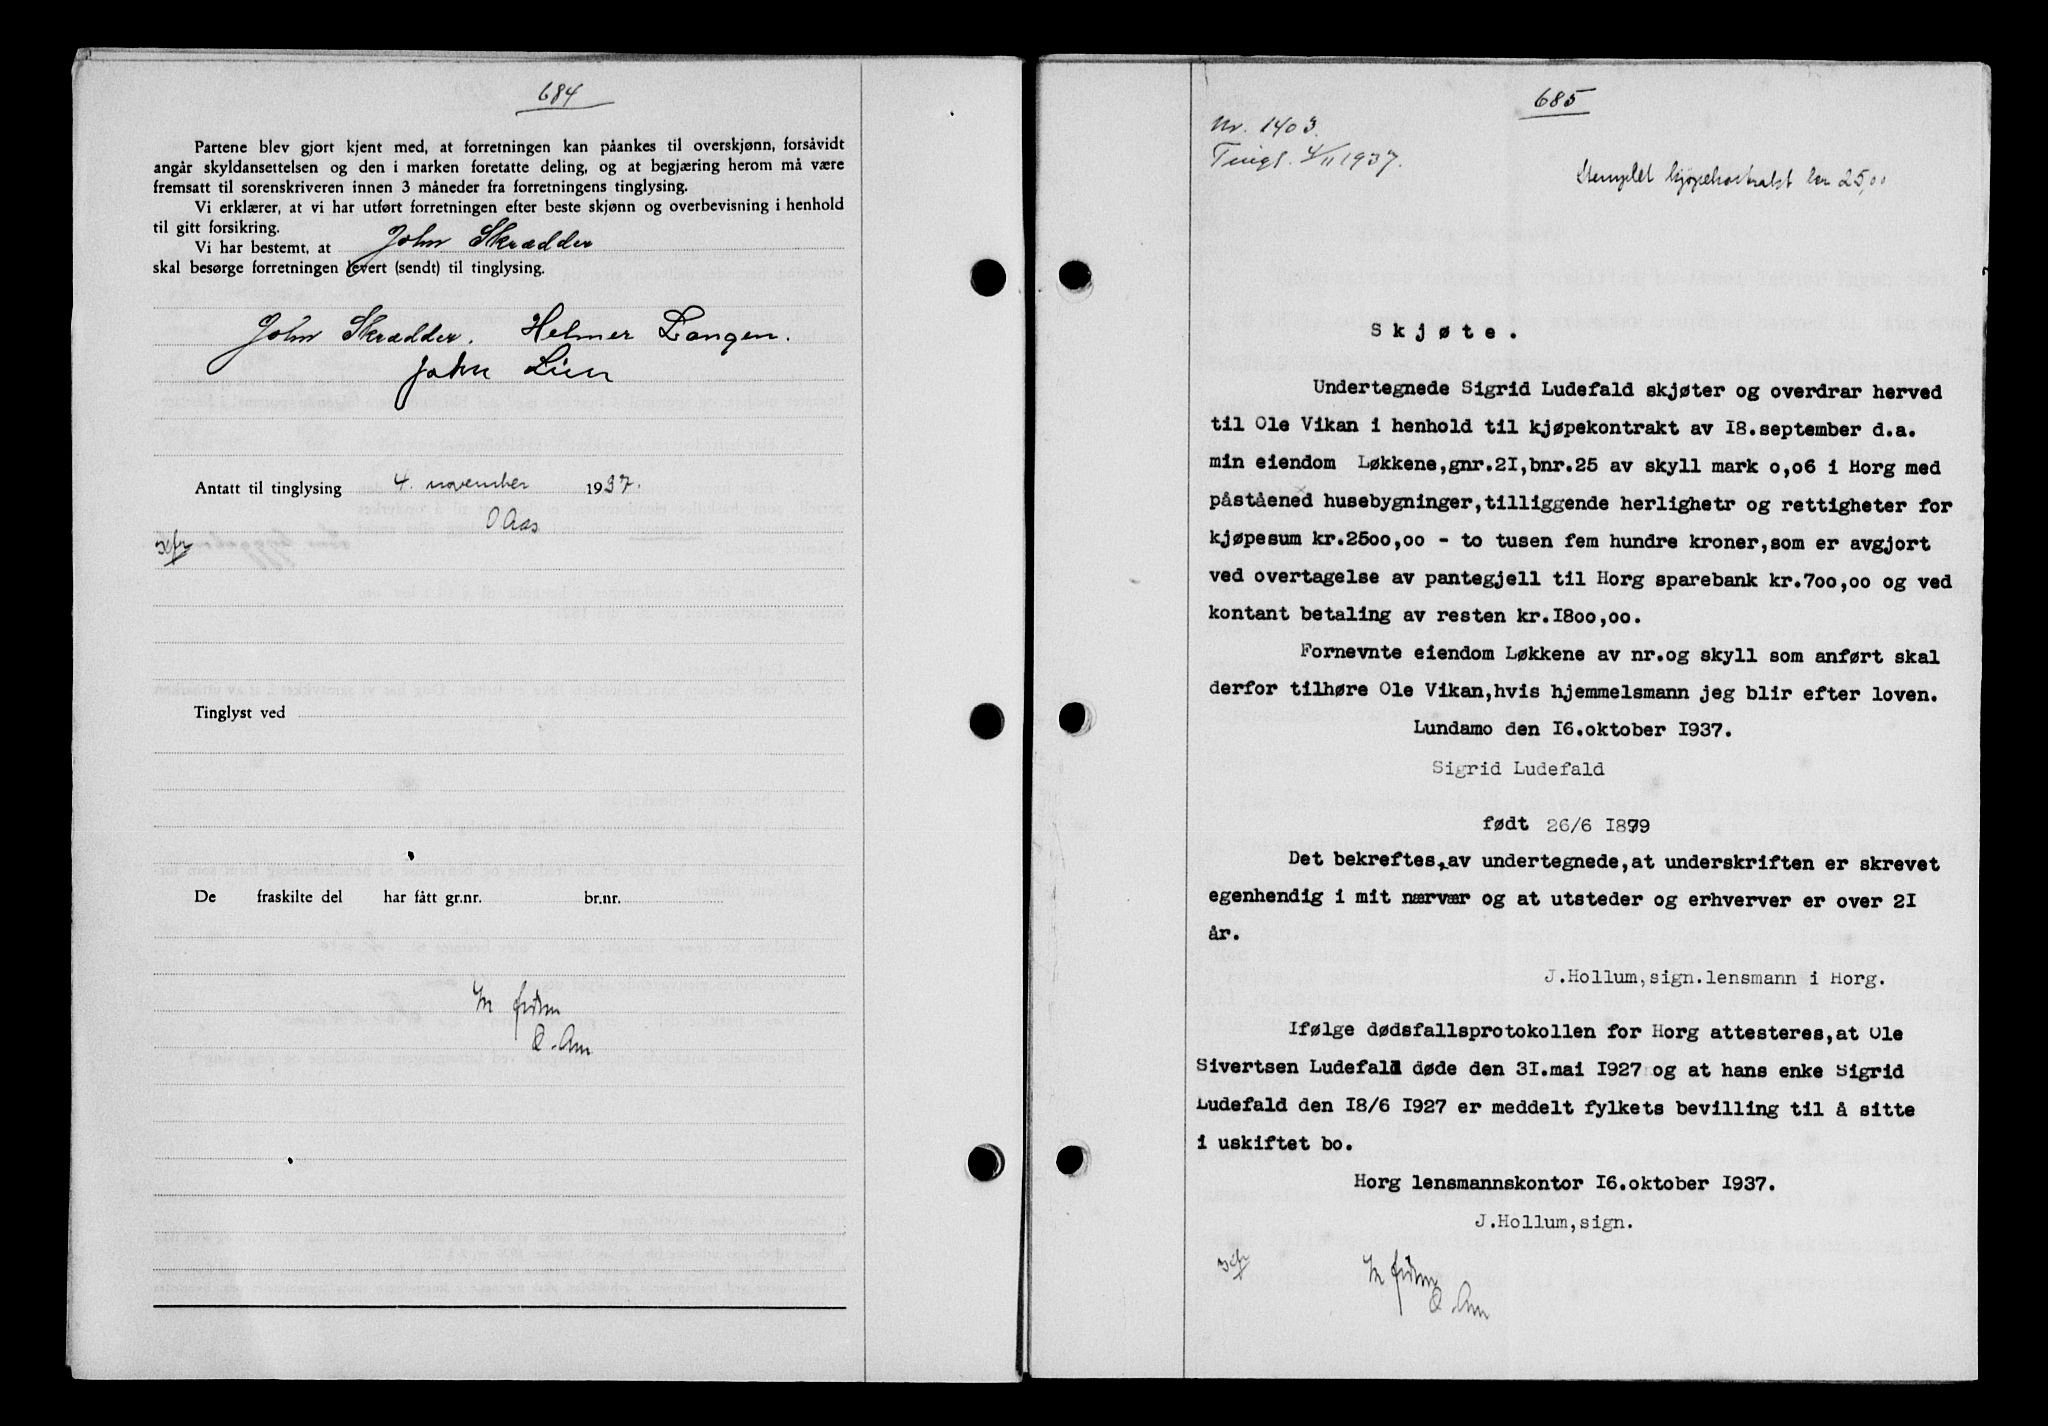 684
Partene blev gjort kjent med, at forretningen kan påankes til overskjønn, forsåvidt
angår skyldansettelsen og den i marken foretatte deling, og at begjæring herom må være
fremsatt til sorenskriveren innen 3 måneder fra forretningens tinglysing.
Vi erklærer, at vi har utført forretningen efter beste skjønn og overbevisning i henhold
til gitt forsikring.
Vi har bestemt, at John Skrædder
skal besørge forretningen levert (sendt) til tinglysing.
John Skrædder. Helmer Langen.
John Lien
Antatt til tinglysing 4. november 1937.
O Aas
Tinglyst ved
De fraskilte del har fått gr.nr. br.nr.
685
Nr. 1403.
Tingl. 4/11 1937.
Stemplet kjøpekontrakt kr 25,00
Skjøte.
Undertegnede Sigrid Ludefald skjøter og overdrar herved
til Ole Vikan i henhold til kjøpekontrakt av 18.september d.a.
min eiendom Løkkene,gnr.21,bnr.25 av skyll mark 0,06 i Horg med
påståened husebygninger,tilliggende herlighetr og rettigheter for
kjøpesum kr.2500,00 - to tusen fem hundre kroner,som er avgjort
ved overtagelse av pantegjell til Horg sparebank kr.700,00 og ved
kontant betaling av resten kr.1800,00.
Fornevnte eiendom Løkkene av nr.og skyll som anført skal
derfor tilhøre Ole Vikan,hvis hjemmelsmann jeg blir efter loven.
Lundamo den 16.oktober 1937.
Sigrid Ludefald
født 26/6 1879
Det bekreftes av undertegnede,at underskriften er skrevet
egenhendig i mit nærvær og at utsteder og erhverver er over 21
år.
J.Hollum,sign.lensmann i Horg.
Ifølge dødsfallsprotokollen for Horg attesteres,at Ole
Sivertsen Ludefald døde den 31.mai 1927 og at hans enke Sigrid
Ludefald den 18/6 1927 er meddelt fylkets bevilling til å sitte
i uskiftet bo.
Horg lensmannskontor 16.oktober 1937.
J.Hollum,sign.